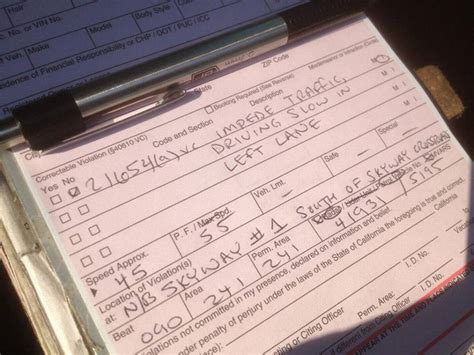 Make
Model
Body Style
Color
or VIN No.
Veh. Make
Evidence of Financial Responsibility or CHP / DOT / PUC / ICC
State
ZIP Code
Booking Required (See Reverse)
Misdemeanor or Infraction (Circle)
Correctable Violation (§40610 VC)
Code and Section
Description
Yes No
21654(a) VC IMPEDE TRAFFIC, M I
DRIVING SLOW IN M I
LEFT LANE M I
Speed Approx.
P.F. / Max Spd
Veh. Lmt.
Safe
Special
45
55
Location of Violation(s)
at: N/B SKYWAY #1 SOUTH OF SKYWAY CROSSROAD
Beat
Perm. Area
090
241
241
41931
5195
violations not committed in my presence, declared on information and belief.
under penalty of perjury under the laws of the State of California the foregoing is true and correct.
Arresting or Citing Officer
I. D. No.
if different from Citing Officer